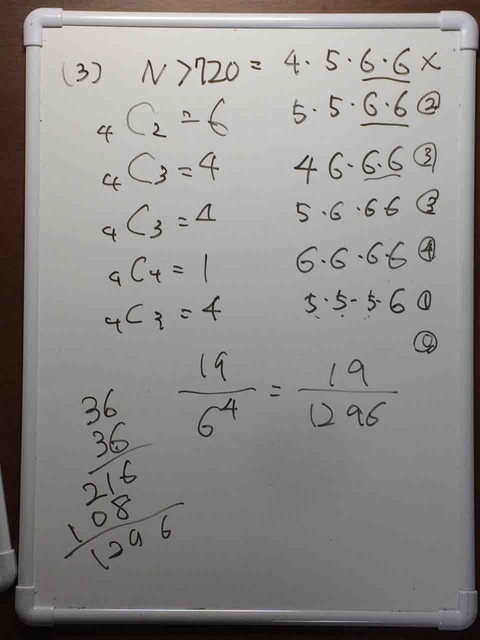 (3) N>720 = 4・5・6・6 ×
₄C₂ = 6 5・5・6・6 ②
₄C₃ = 4 4 6・6・6 ③
₄C₃ = 4 5・6・6 6 ③
₄C₄ = 1 6・6・6・6 ④
₄C₃ = 4 5・5・5・6 ①
⓪
19/6⁴ = 19/1296
36
36
216
108
1296